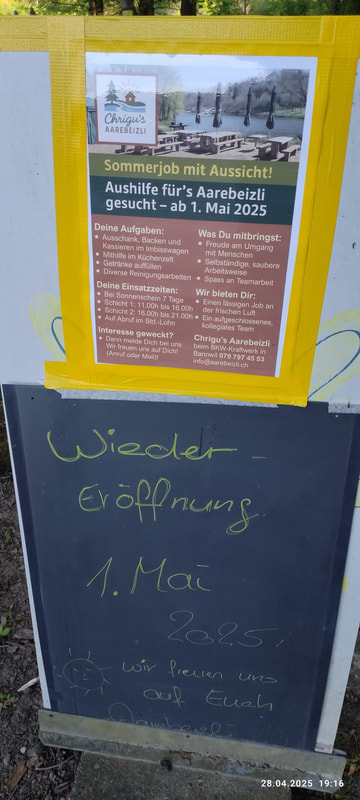 Chrigu's
AAREBEIZLI
Sommerjob mit Aussicht!
Aushilfe für's Aarebeizli
gesucht – ab 1. Mai 2025
Deine Aufgaben:
• Ausschank, Backen und
Kassieren im Imbisswagen
• Mithilfe im Küchenzelt
• Getränke auffüllen
• Diverse Reinigungsarbeiten
Deine Einsatzzeiten:
• Bei Sonnenschein 7 Tage
• Schicht 1: 11.00h bis 16.00h
• Schicht 2: 16.00h bis 21.00h
• Auf Abruf im Std.-Lohn
Interesse geweckt?
• Dann melde Dich bei uns
Wir freuen uns auf Dich!
(Anruf oder Mail)!
Was Du mitbringst:
• Freude am Umgang
mit Menschen
• Selbständige, saubere
Arbeitsweise
• Spass an Teamarbeit
Wir bieten Dir:
• Einen lässigen Job an
der frischen Luft
• Ein aufgeschlossenes,
kollegiales Team
Chrigu's Aarebeizli
beim BKW-Kraftwerk in
Bannwil 079 797 45 53
info@aarebeizli.ch
Wieder-
Eröffnung
1. Mai
2025.
wir freuen uns
auf Euch
28.04.2025 19:16